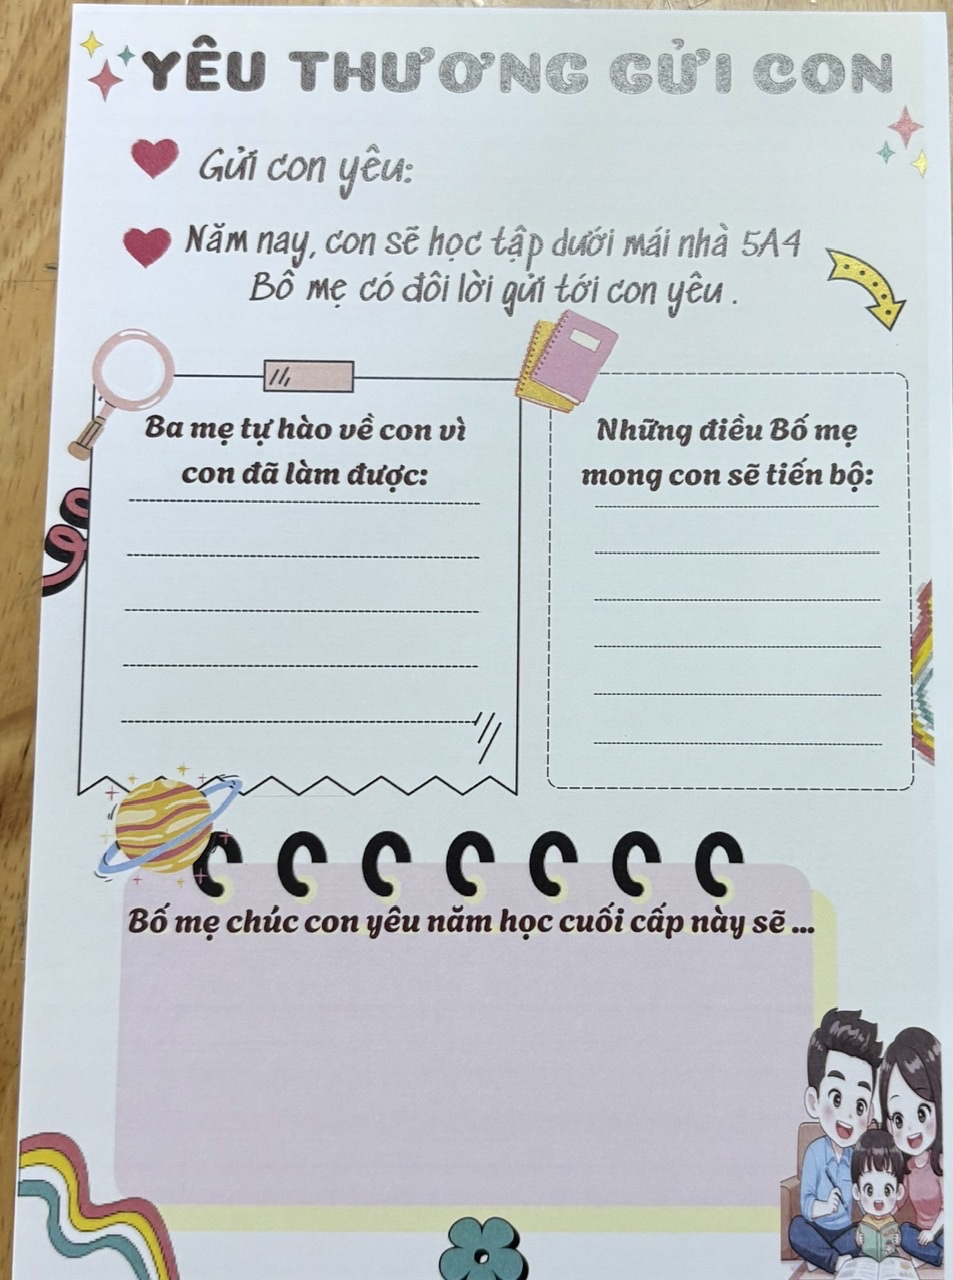 YÊU THƯƠNG GỬI CON
Gửi con yêu:
Năm nay, con sẽ học tập dưới mái nhà 5A4
Bố mẹ có đôi lời gửi tới con yêu .
Ba mẹ tự hào về con vì
con đã làm được:
Những điều Bố mẹ
mong con sẽ tiến bộ:
Bố mẹ chúc con yêu năm học cuối cấp này sẽ ...